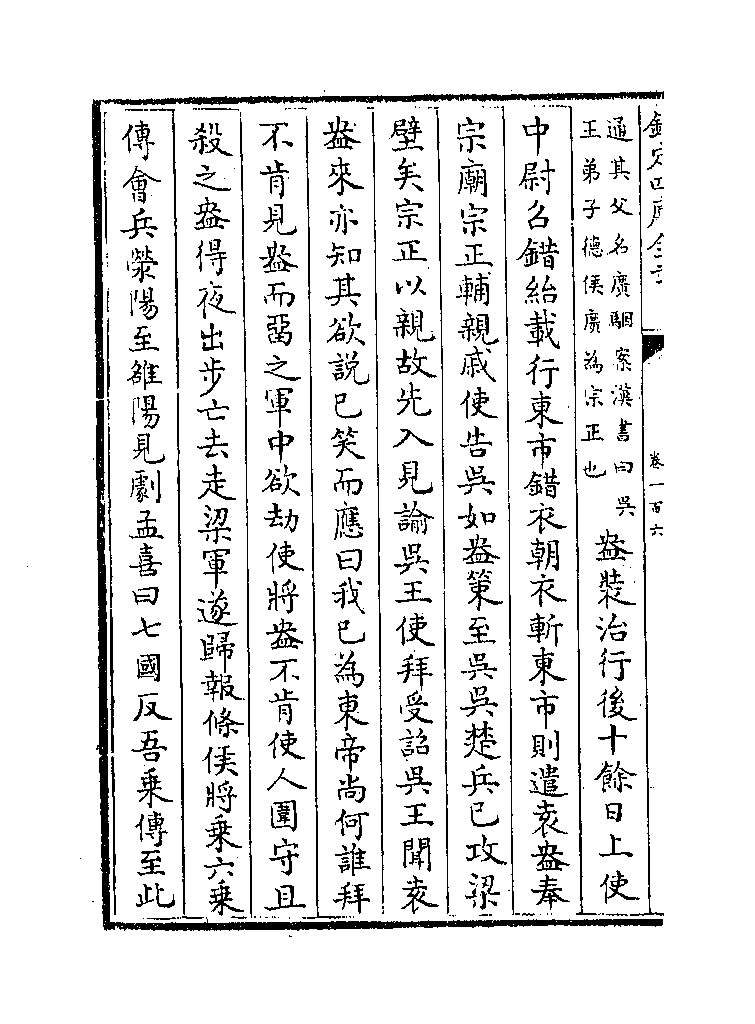 欽定四庫全書
卷一百六
通其父名廣駰案漢書曰吳
王弟子德侯廣為宗正也
盎裝治行後十餘日上使
中尉召錯紿載行東市錯衣朝衣斬東市則遣袁盎奉
宗廟宗正輔親戚使告吳如盎策至吳吳楚兵已攻梁
壁矣宗正以親故先入見諭吳王使拜受詔吳王聞袁
盎來亦知其欲說已笑而應曰我已為東帝尚何誰拜
不肯見盎而留之軍中欲劫使將盎不肯使人圍守且
殺之盎得夜出步亡去走梁軍遂歸報條侯將乗六乗
傳會兵滎陽至雒陽見劇孟喜曰七國反吾乗傳至此